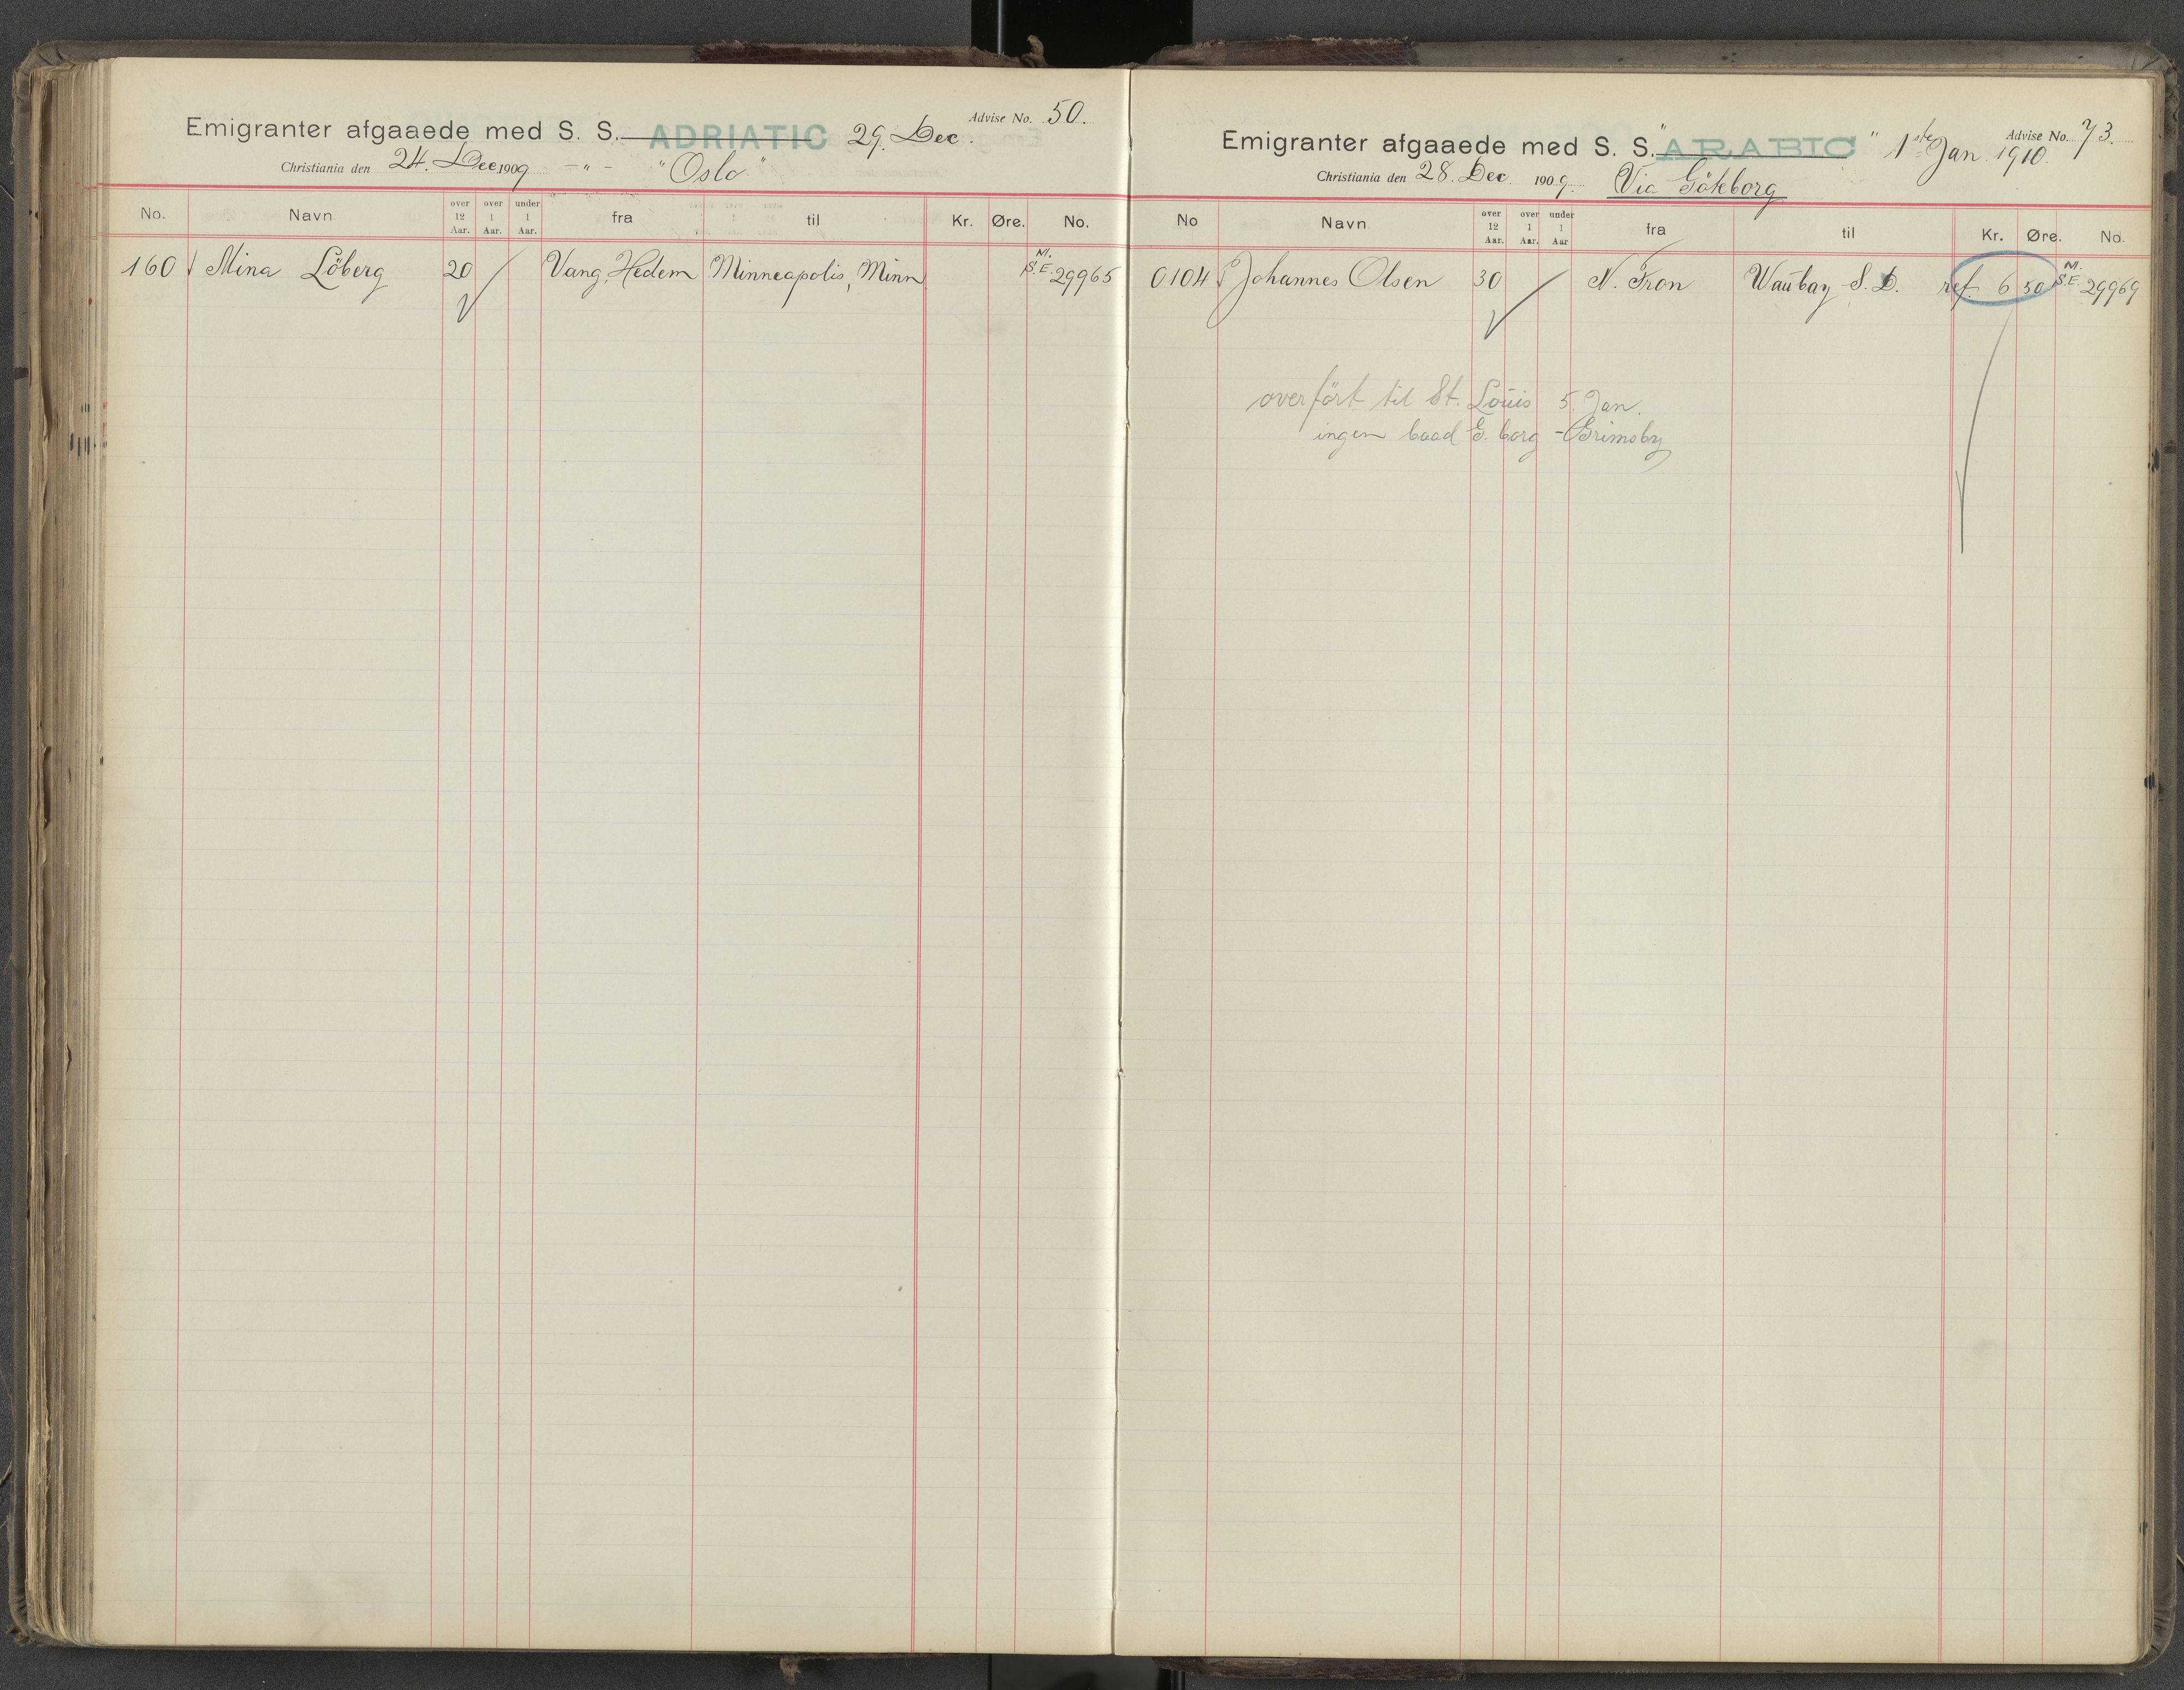 Advise No. 50.
Emigranter afgaaede med S. S. ADRIATIC 29. Dec.
Christiania den 24. Dec. 1909 -"- "Oslo"
No. Navn over 12 Aar. over 1 Aar. under 1 Aar. fra til Kr. Øre. No.
160 Mina Löberg 20 Vang, Hedem Minneapolis, Minn N. S.E. 29965
Advise No. 73.
Emigranter afgaaede med S. S. "ARABIC" 1ste Jan. 1910.
Christiania den 28. Dec. 1909. Via Göteborg
No Navn over 12 Aar. over 1 Aar. under 1 Aar fra til Kr. Øre. No.
0104 Johannes Olsen 30 N. Fron Waubay S. D. ref. 6 50 N. S.E. 29969
overført til St. Louis 5. Jan.
ingen baad G. borg - Grimsby